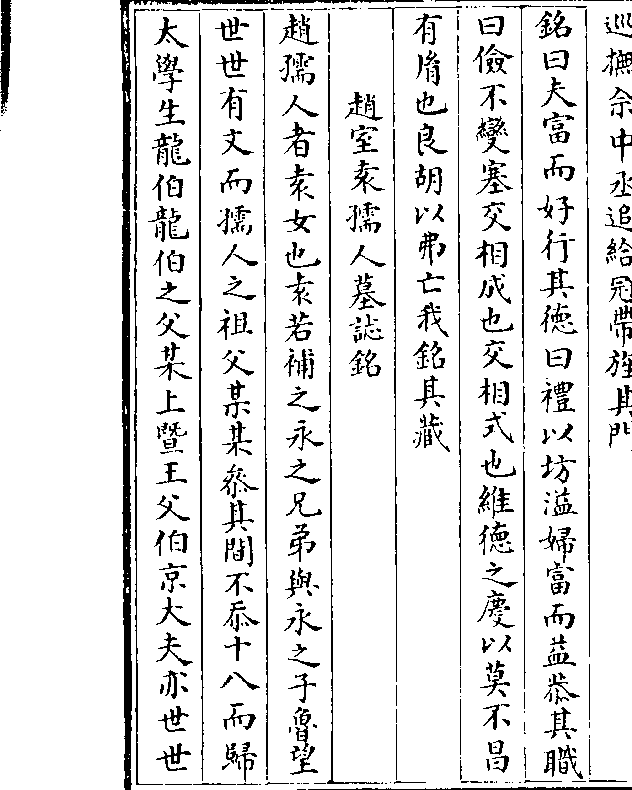 巡撫佘中丞追給冠帶旌其門
銘曰夫富而好行其德曰禮以坊溢婦富而益恭其職
曰儉不變塞交相成也交相式也維德之慶以莫不昌
有脩也良胡以弗亡我銘其藏
趙室袁孺人墓誌銘
趙孺人者袁女也袁若補之永之兄弟與永之子魯望
世世有文而孺人之祖父某某叅其間不忝十八而歸
太學生龍伯龍伯之父某上暨王父伯京大夫亦世世